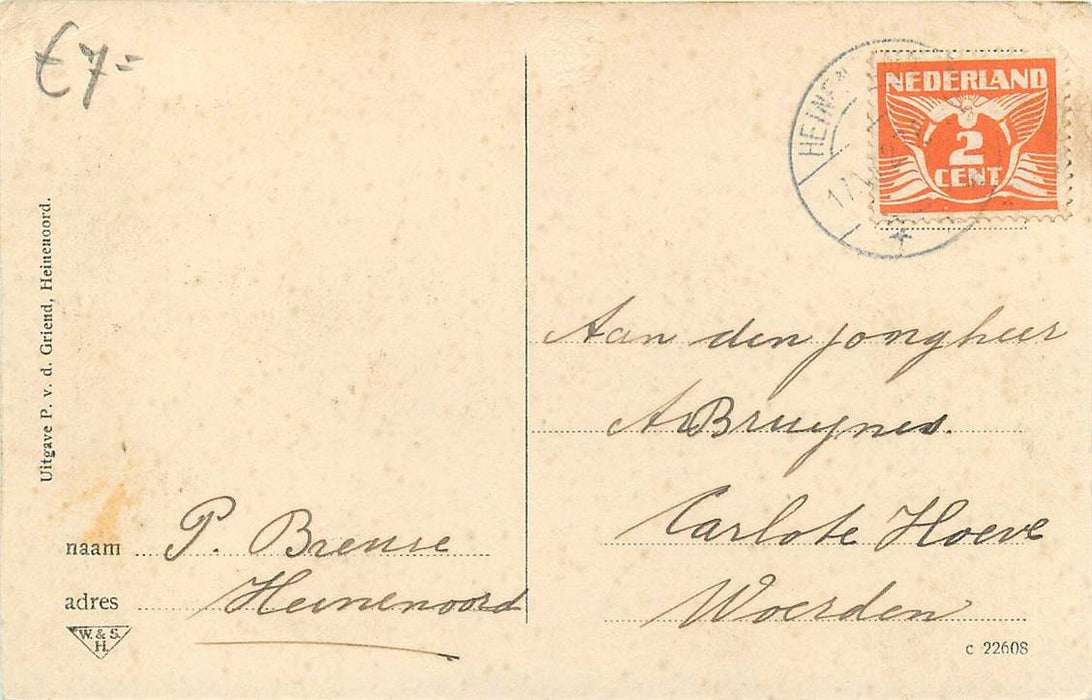 € 7=
Uitgave P. v. d. Griend, Heinenoord.
naam P. Breure
adres Heinenoord
W. & S.
H.
HEINEN
17
NEDERLAND
2
CENT
Aan den jongheer
A Bruynes.
Carlote Hoeve
Woerden
c 22608